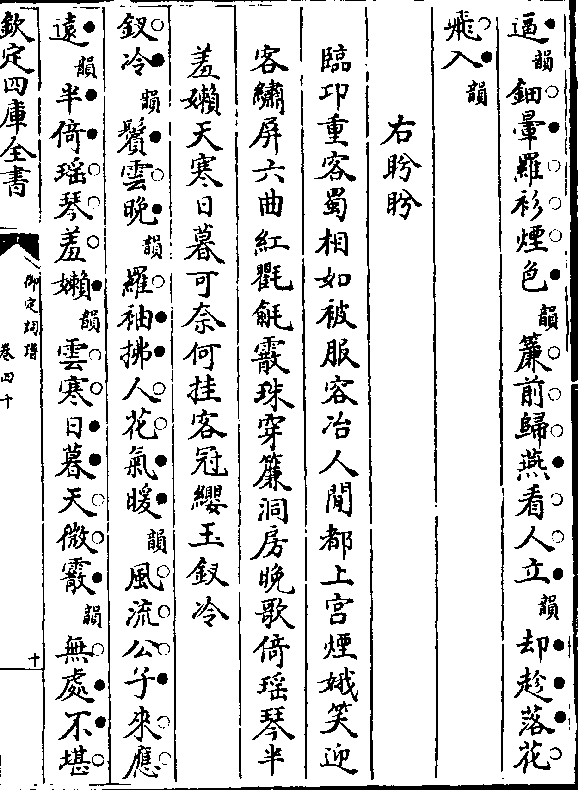 逼韻鈿暈羅衫煙色韻簾前歸燕看人立韻却趁落花
飛入韻
右盻盻
臨卭重客蜀相如被服容冶人閒都上宮煙娥笑迎
客繡屏六曲紅氍毹霰珠穿簾洞房晚歌倚瑶琴半
羞嬾天寒日暮可奈何挂客冠纓玉釵冷
釵冷韻鬢雲晚韻羅袖拂人花氣暖韻風流公子來應
遠韻半倚瑶琴羞嬾韻雲寒日暮天微霰韻無處不堪
欽定四庫全書
御定詞譜
卷四十
十